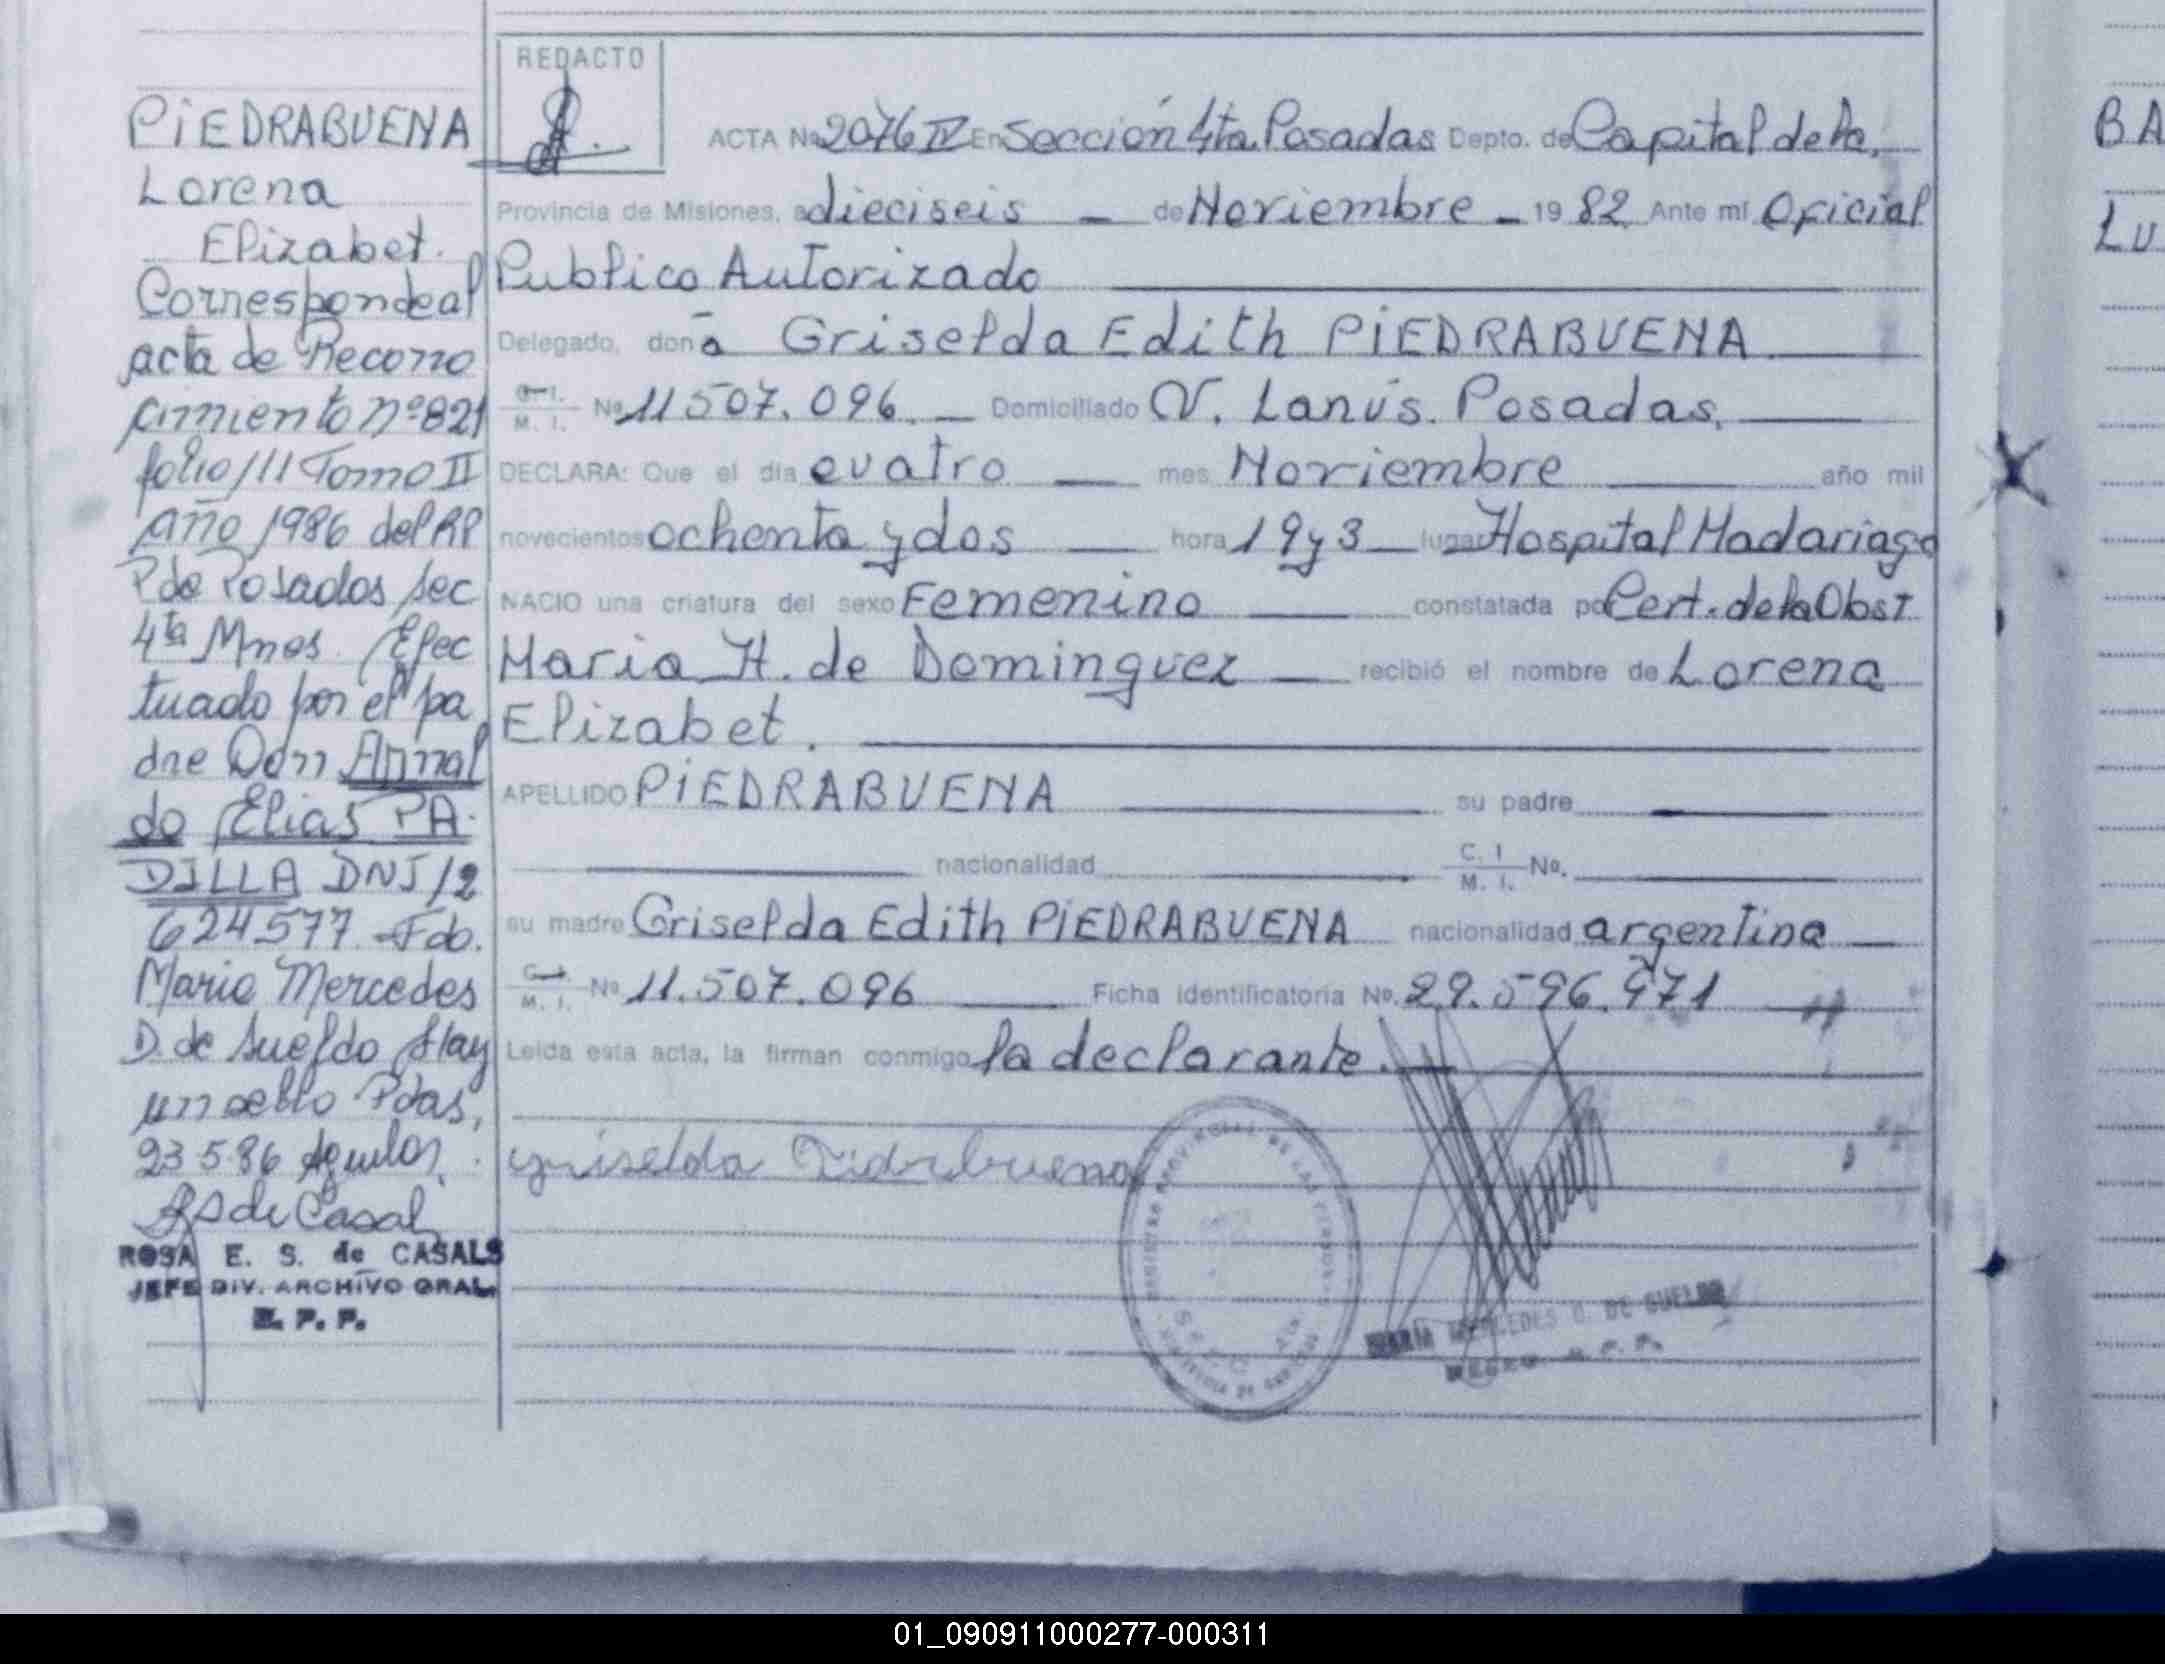 PIEDRABUENA
Lorena
Elizabet.
Corresponde al
acta de Recono
cimiento nº 821
folio 111 Tomo II
año 1986 del RP
P de Posadas Sec
4ta Mnes. Efec
tuado por el pa
dre Don Arnal
do Elias PA
DILLA DNI 12
624577 Fdo.
Maria Mercedes
D. de Sueldo Hay
un sello Pdas,
23 5 86 Aguilar
RS de Casal
ROSA E. S. de CASALS
JEFE DIV. ARCHIVO GRAL.
R. P. P.
REDACTO
ACTA Nº 2076 IV En Sección 4ta. Posadas Depto. de Capital de la
Provincia de Misiones, a dieciseis - de Noviembre - 19 82 Ante mí Oficial
Publico Autorizado
Delegado, don a Griselda Edith PIEDRABUENA
C. I.
M. I. Nº 11507.096. Domiciliado V. Lanús. Posadas,
DECLARA: Que el día cuatro mes Noviembre año mil
novecientos ochenta y dos hora 19 y 3 lugar Hospital Madariaga
NACIO una criatura del sexo Femenino constatada por Cert. de la Obst
Maria H. de Dominguez recibió el nombre de Lorena
Elizabet.
APELLIDO PIEDRABUENA su padre
nacionalidad C. I
M. I. Nº.
su madre Griselda Edith PIEDRABUENA nacionalidad argentina
C. I.
M. I. Nº 11.507.096 Ficha identificatoria Nº. 29.596.971
Leída esta acta, la firman conmigo la declarante.
Griselda Pidrabuena
MARIA MERCEDES D. DE SUELDO
R. P. P.
BA
LU
01_090911000277-000311